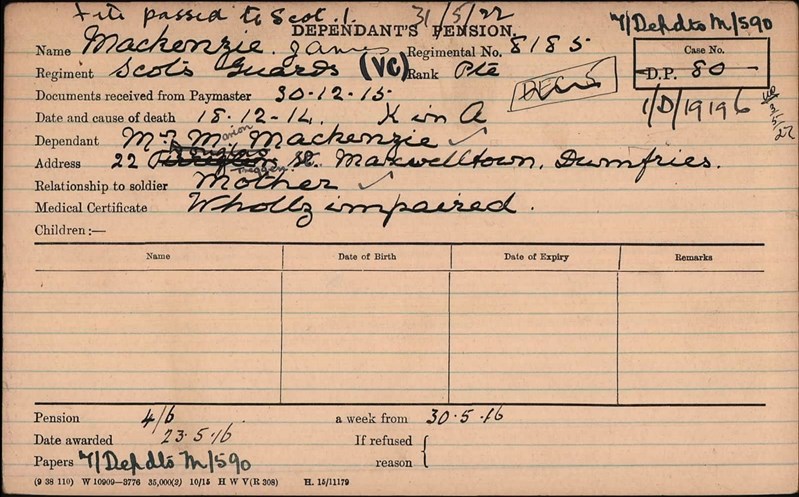 File passed to Scot. 1. 31/5/22
DEPENDANT'S PENSION.
7/Depdts M/590
Name Mackenzie. James Regimental No. 8185
Case No.
D.P. 80
Regiment Scots Guards (VC) Rank Pte
DEC'S
1/D/19196
Documents received from Paymaster 30.12.15
Date and cause of death 18.12.14. K in A
Dependant Mrs Marion Mackenzie
Address 22 Douglas St. Maxwelltown, Dumfries.
Relationship to soldier Mother
Medical Certificate Wholly impaired.
Children:—
Name Date of Birth Date of Expiry Remarks
Pension 4/6 a week from 30.5.16
Date awarded 23.5.16 If refused
Papers 7/Depdts M/590 reason
(9 38 110) W 10909—3776 35,000(2) 10/15 H W V(R 308) H. 15/11179